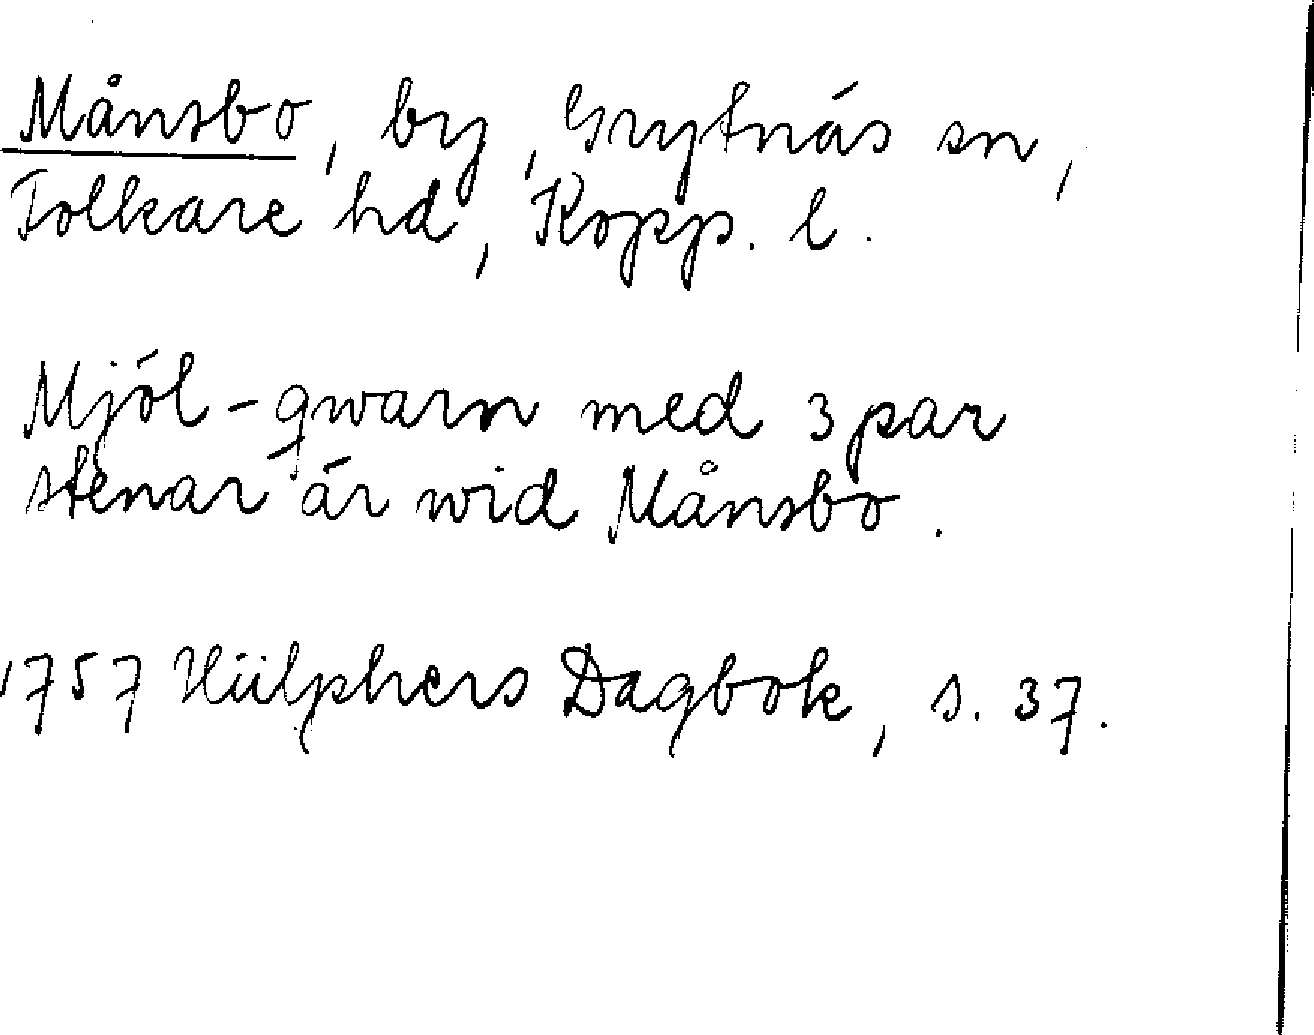 Månsbo, by, Grytnäs sn,
Folkare hd, Kopp. l.
Mjöl-qwarn med 3 par
stenar är wid Månsbo.
1757 Hülphers Dagbok, s. 37.